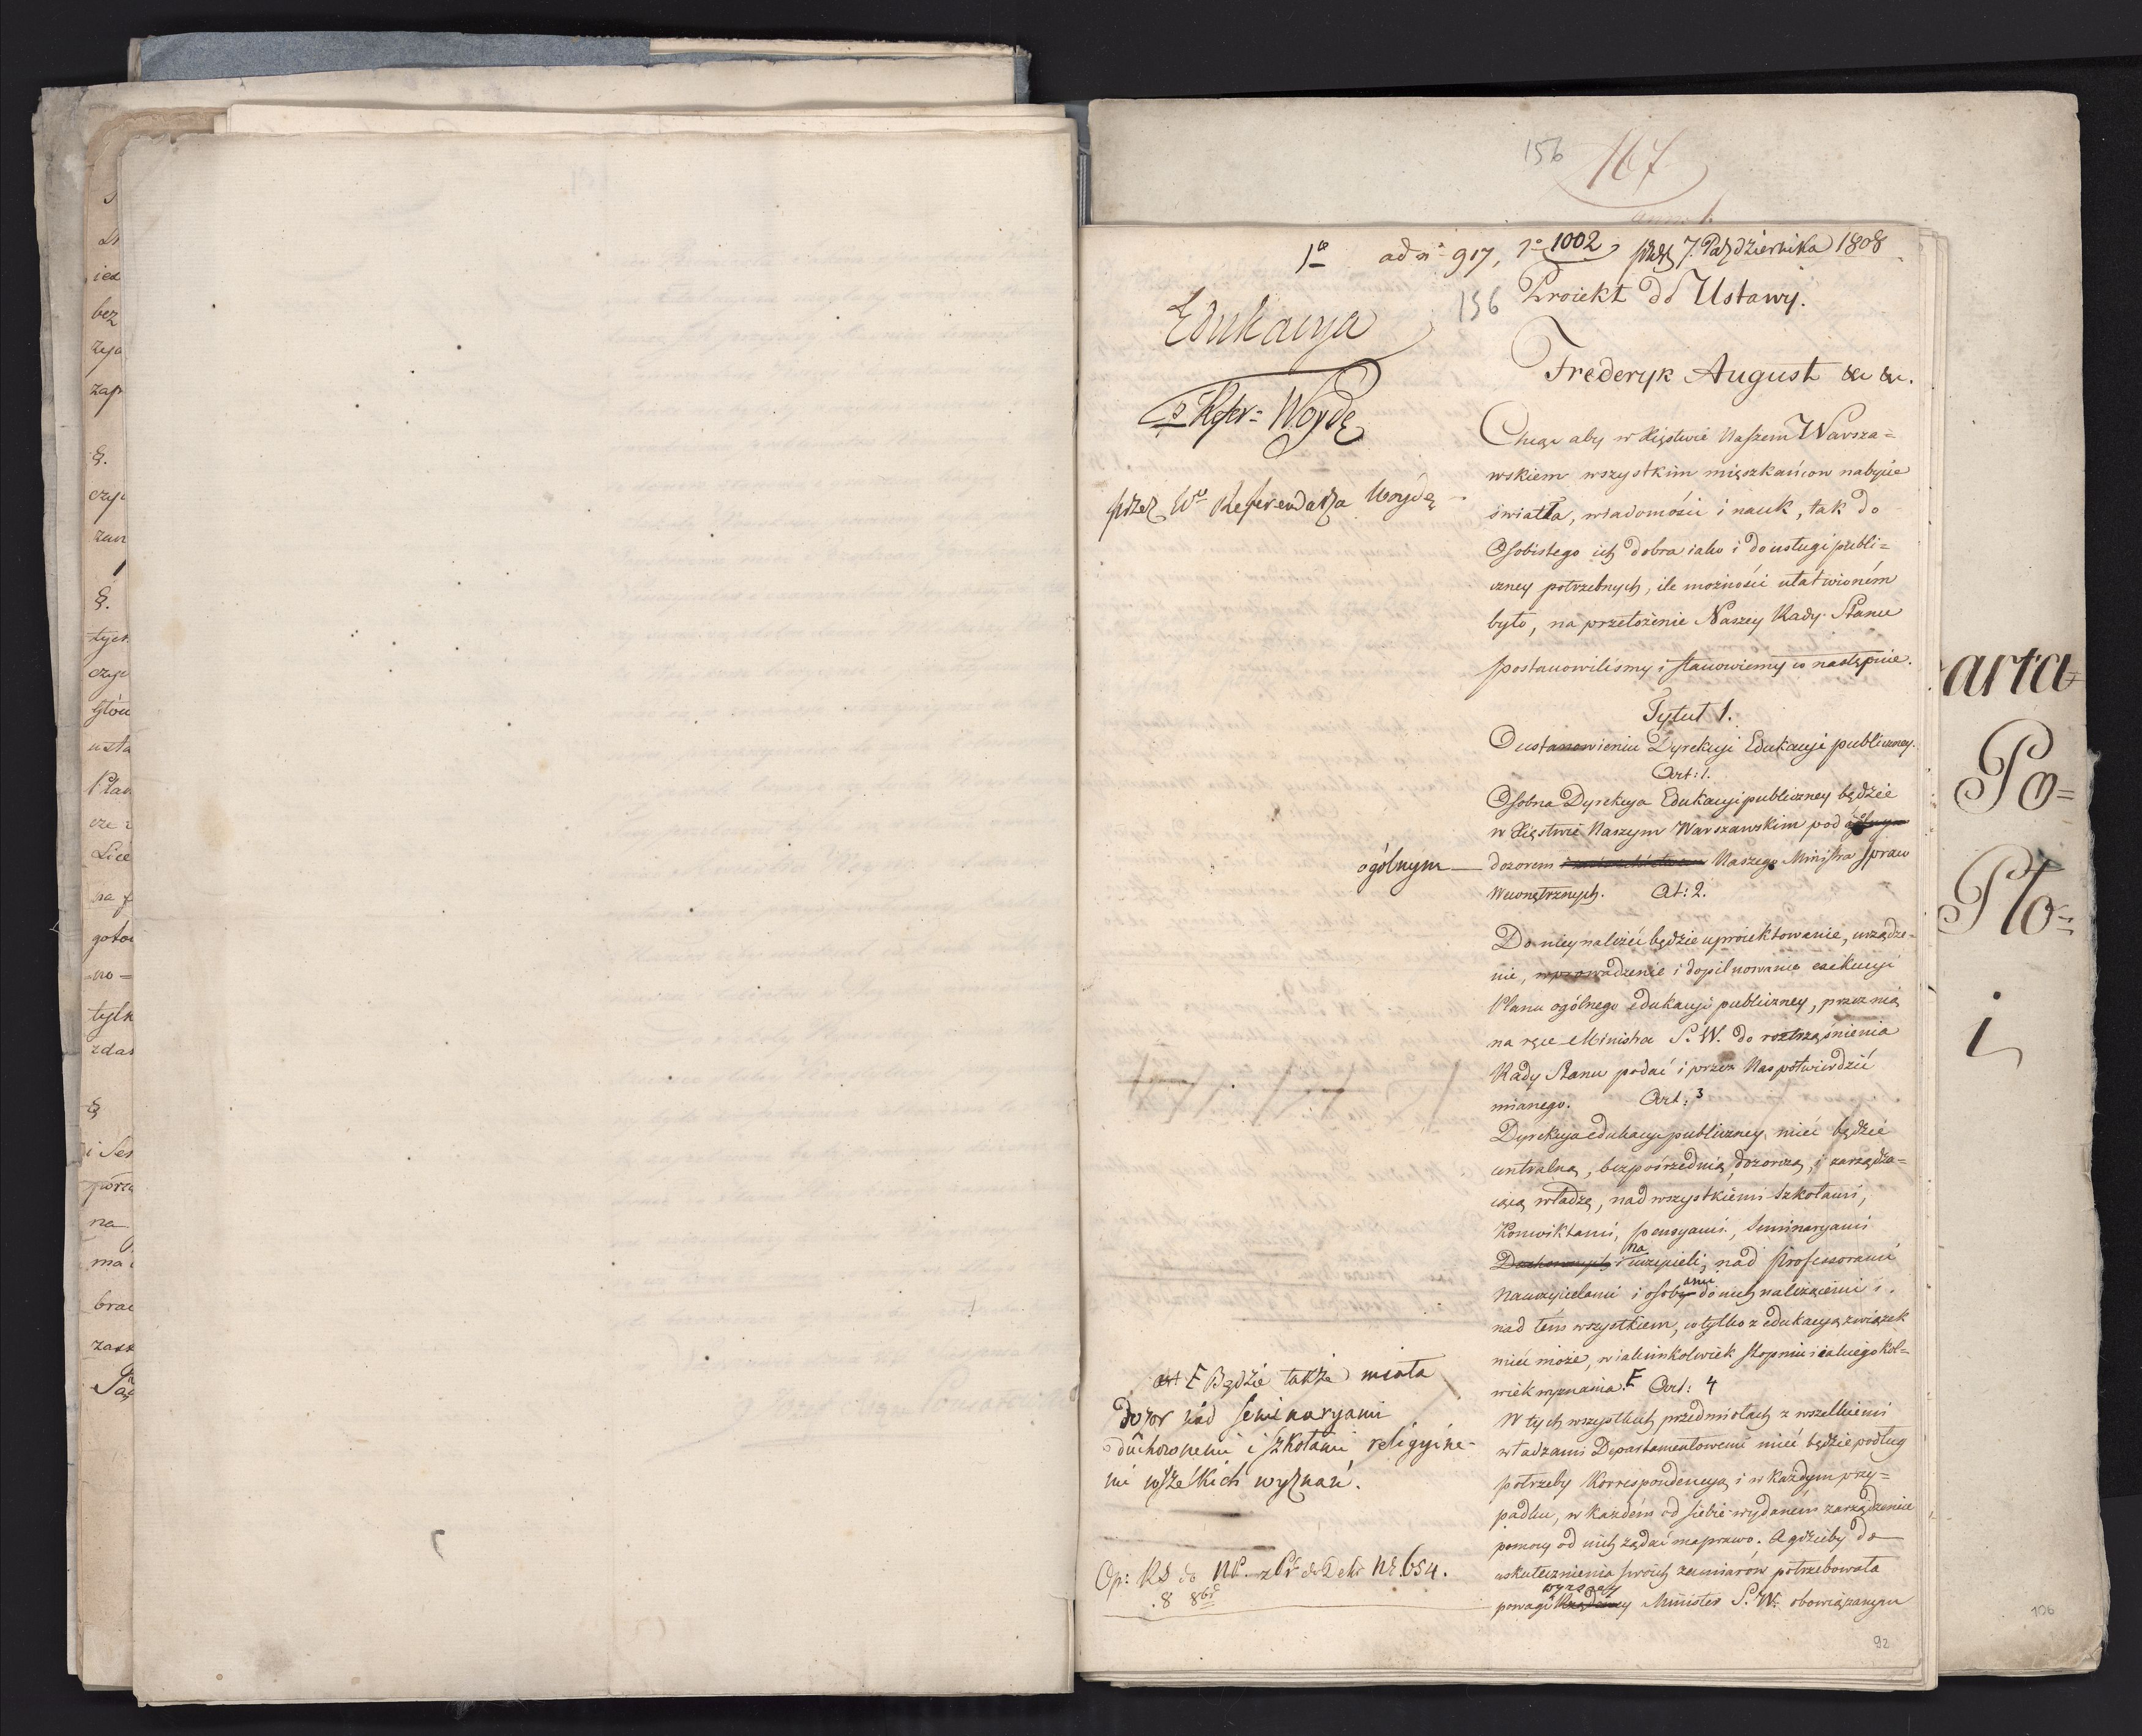 156 167
1º ad nº 917, 1º 1002, 7. Października 1808
156 Proiekt do Ustawy.
Edukacya
Frederyk August &c &c.
Refer= Woydę
przez Wº Referendarza Woydę
Chcąc aby w Xięstwie Naszem Warsza=
wskiem wszystkim mięszkańcow nabycie
światła, wiadomości i nauk, tak do
Osobistego ich dobra iako i do usługi publi=
czney potrzebnych, ile możności ułatwioném
było, na przełożenie Naszey Rady Stanu
postanowiliśmy i stanowiemy co następuie.
Tytuł 1.
O ustanowieniu Dyrekcyi Edukacyi publiczney.
Art: 1.
Osobna Dyrekcya Edukacyi publiczney będzie
w Xięstwie Naszym Warszawskim pod
ogólnym
dozorem Naszego Ministra Spraw
Wewnętrznych. At: 2.
Do niey należeć będzie uproiektowanie, urządze=
nie, wprowadzenie i dopilnowanie exekucyi
Planu ogólnego edukacyi publiczney, przez nią
na ręce Ministra S. W. do roztrząśnienia
Rady Stanu podać i przez Nas potwierdzić
mianego. Art: 3
Dyrekcya edukacyi publiczney, mieć będzie
centralną, bezpośrzednią, dozorczą, i zarządza=
iącą władzę, nad wszystkiemi Szkołami,
Konwiktami, pensyami, Seminaryami
Duchownych i nauczycieli, nad Professorami
Nauczycielami i osobami do nich należącemi i
nad tém wszystkiem, co tylko z edukacyą związek
mieć może, w iakimkolwiek stopniu i iakiegokol=
wiek wyznania. F Art: 4
F Będzie także miała
dozor nad seminaryami
duchownemi i szkołami religyine=
mi wszelkich wyznań.
W tych wszystkich przedmiotach z wszelkiemi
władzami Departamentowemi mieć będzie podług
potrzeby Korrespondencyą i w każdym przy=
padku, w każdém od siebie wydaném zarządzeniu
pomocy od nich żądać ma prawo. A gdzieby do
uskutecznienia swoich zamiarów potrzebowała
wyższey
powagi Minister S. W. obowiązanym
Op: RS do NP. Nr 654.
92
106
arta=
Po=
Pło=
i